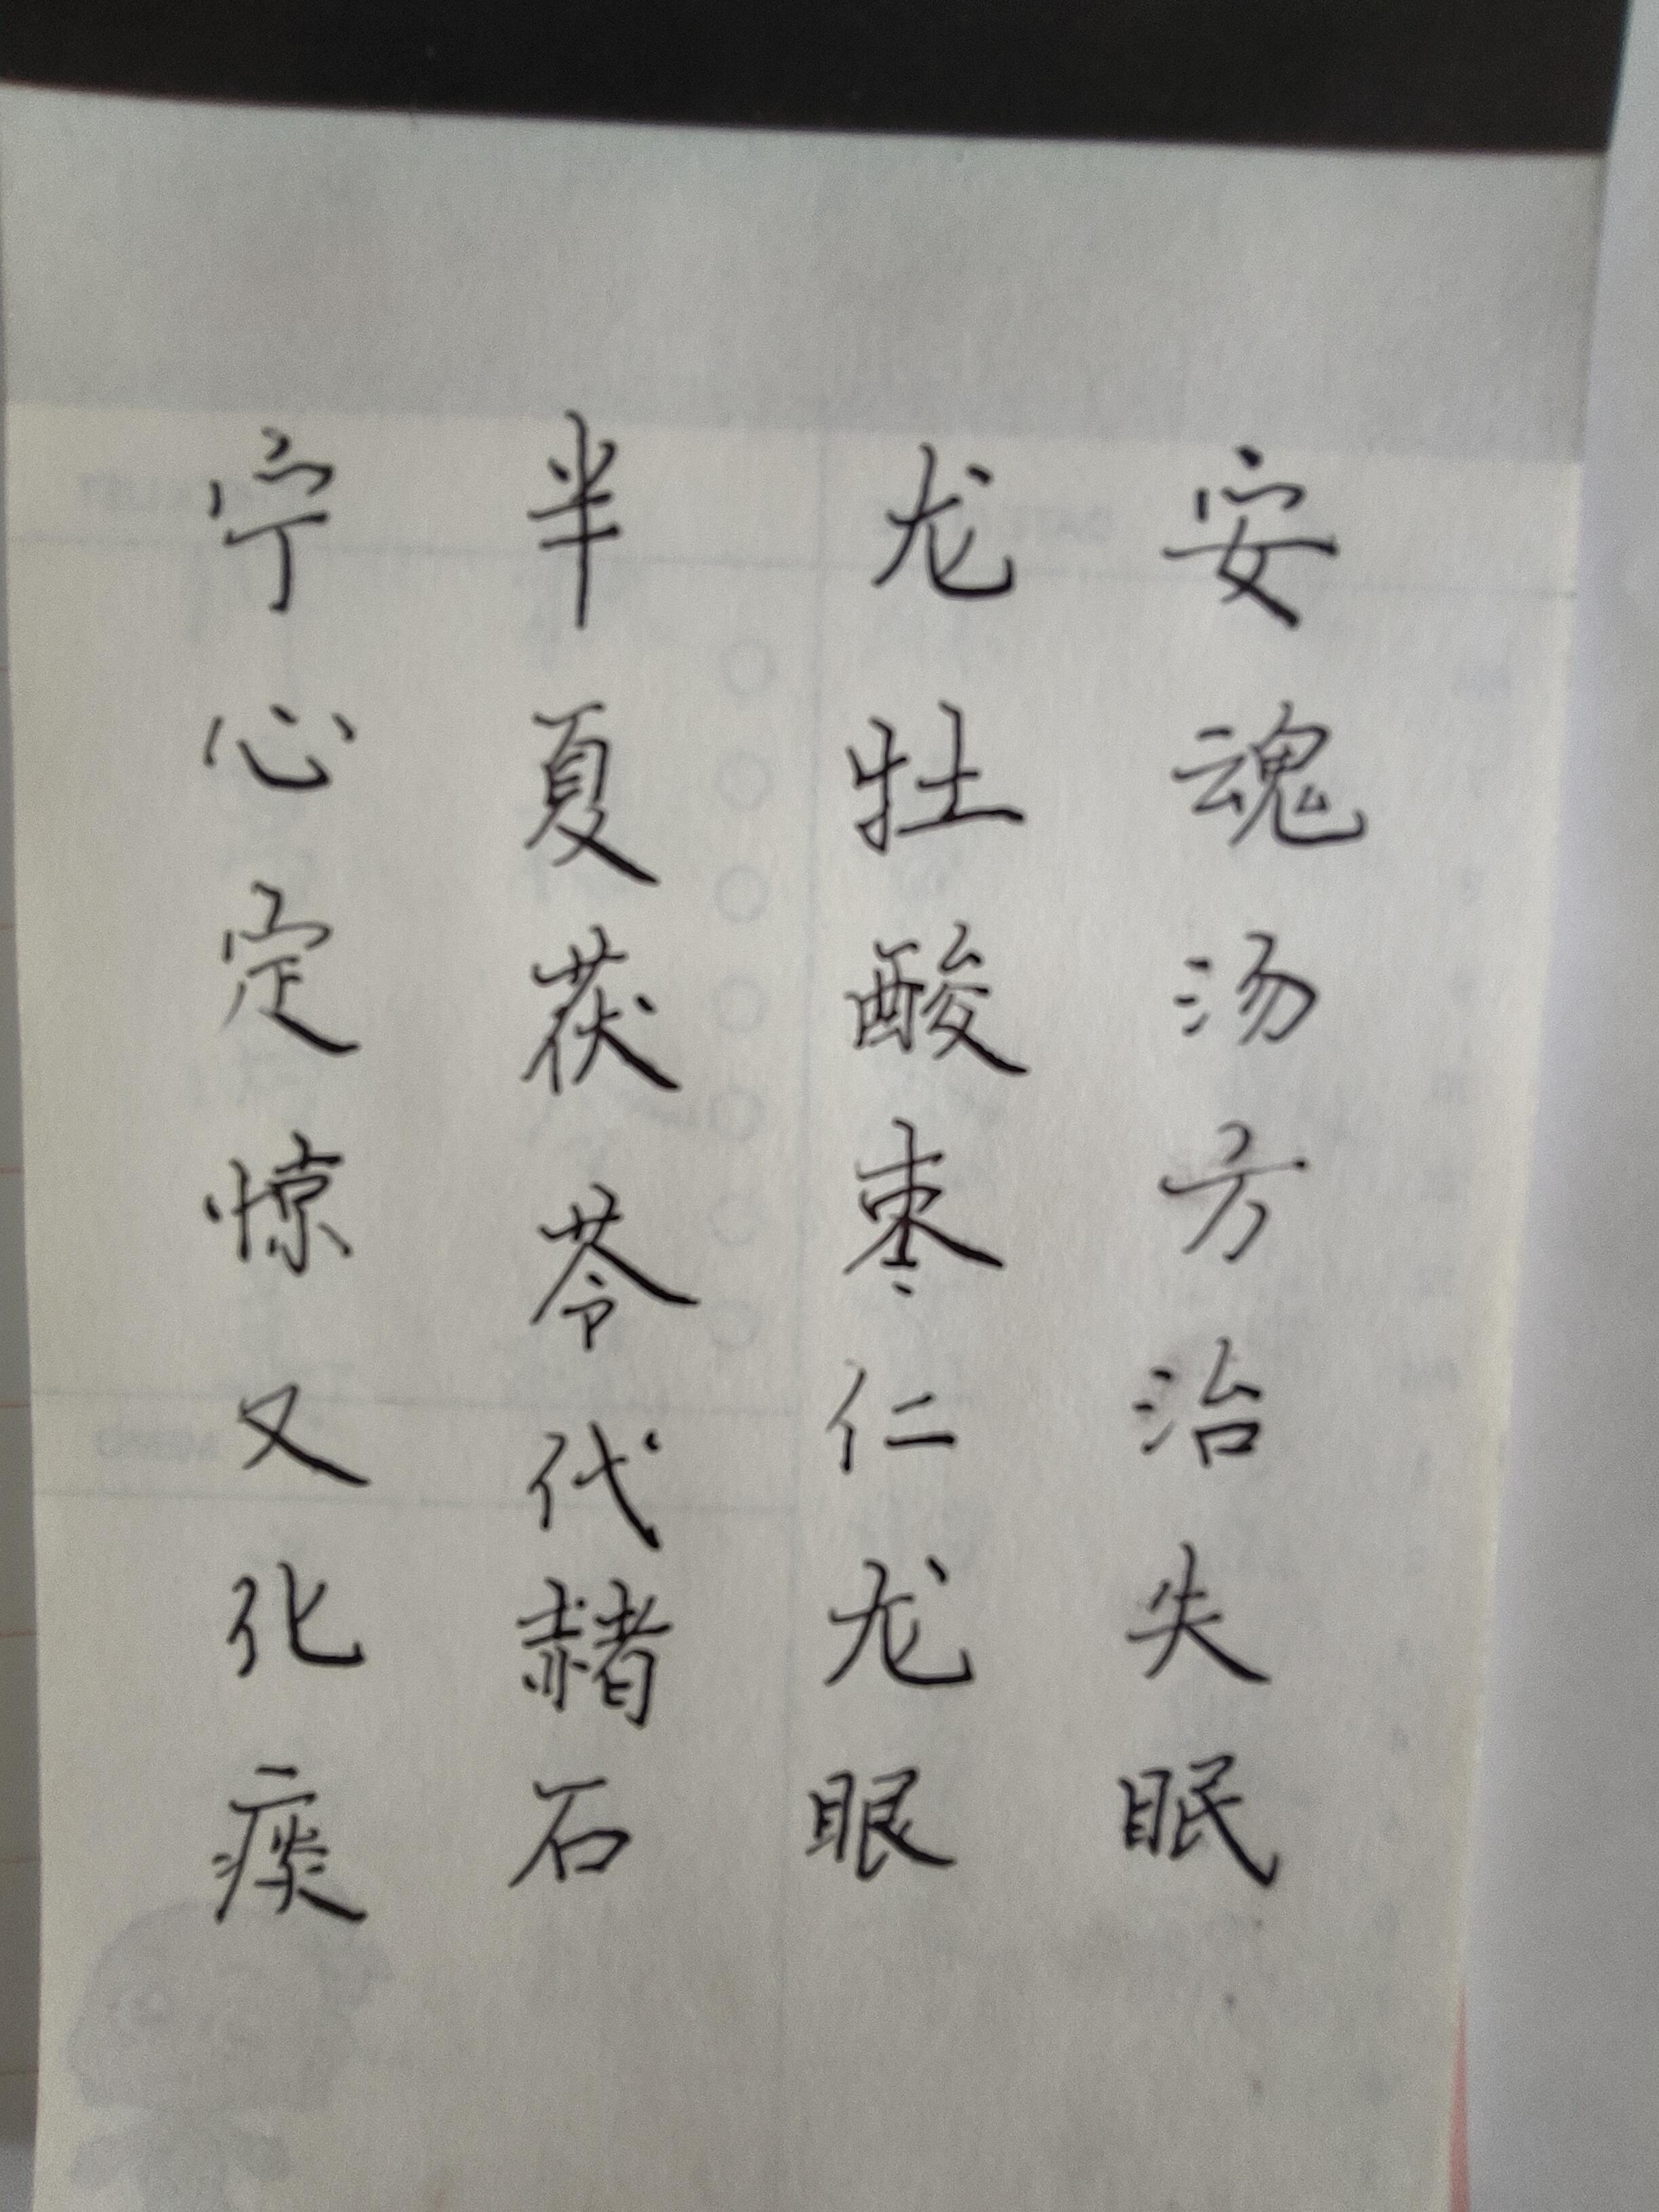 安魂汤方治失眠
龙牡酸枣仁龙眼
半夏茯苓代赭石
宁心定惊又化痰